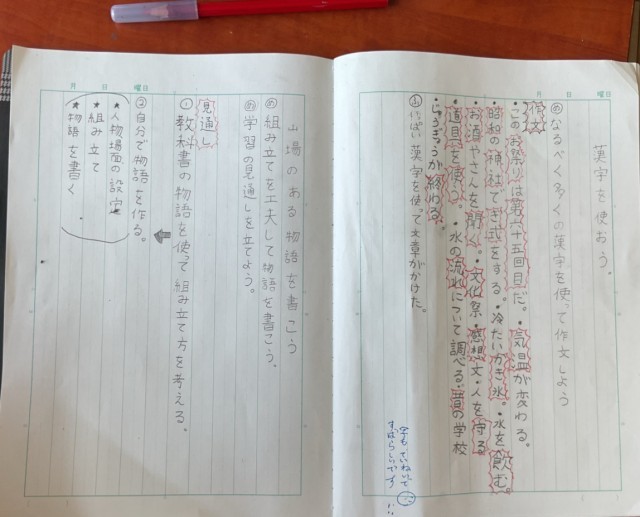 月 日 曜日
漢字を使おう。
めなるべく多くの漢字を使って作文しよう
作文
・このお祭りは第二十五回目だ。・気温が変わる。
・昭和の神社でき式をする。・冷たいかき氷。・水を飲む。
・お酒やさんを開く。・文化祭・感想文・人を守る
・道具を使う・水の流れについて調べる・昔の学校
・じゅぎょうが終わる。
漢字を使って文章がかけた。
字もていねいで
すばらしいです
月 日 曜日
山場のある物語を書こう
め組み立てを工夫して物語を書こう。
学習の見通しを立てよう。
見通し
①教科書の物語を使って組み立て方を考える。
②自分で物語を作る。
★人物場面の設定
★組み立て
★物語を書く